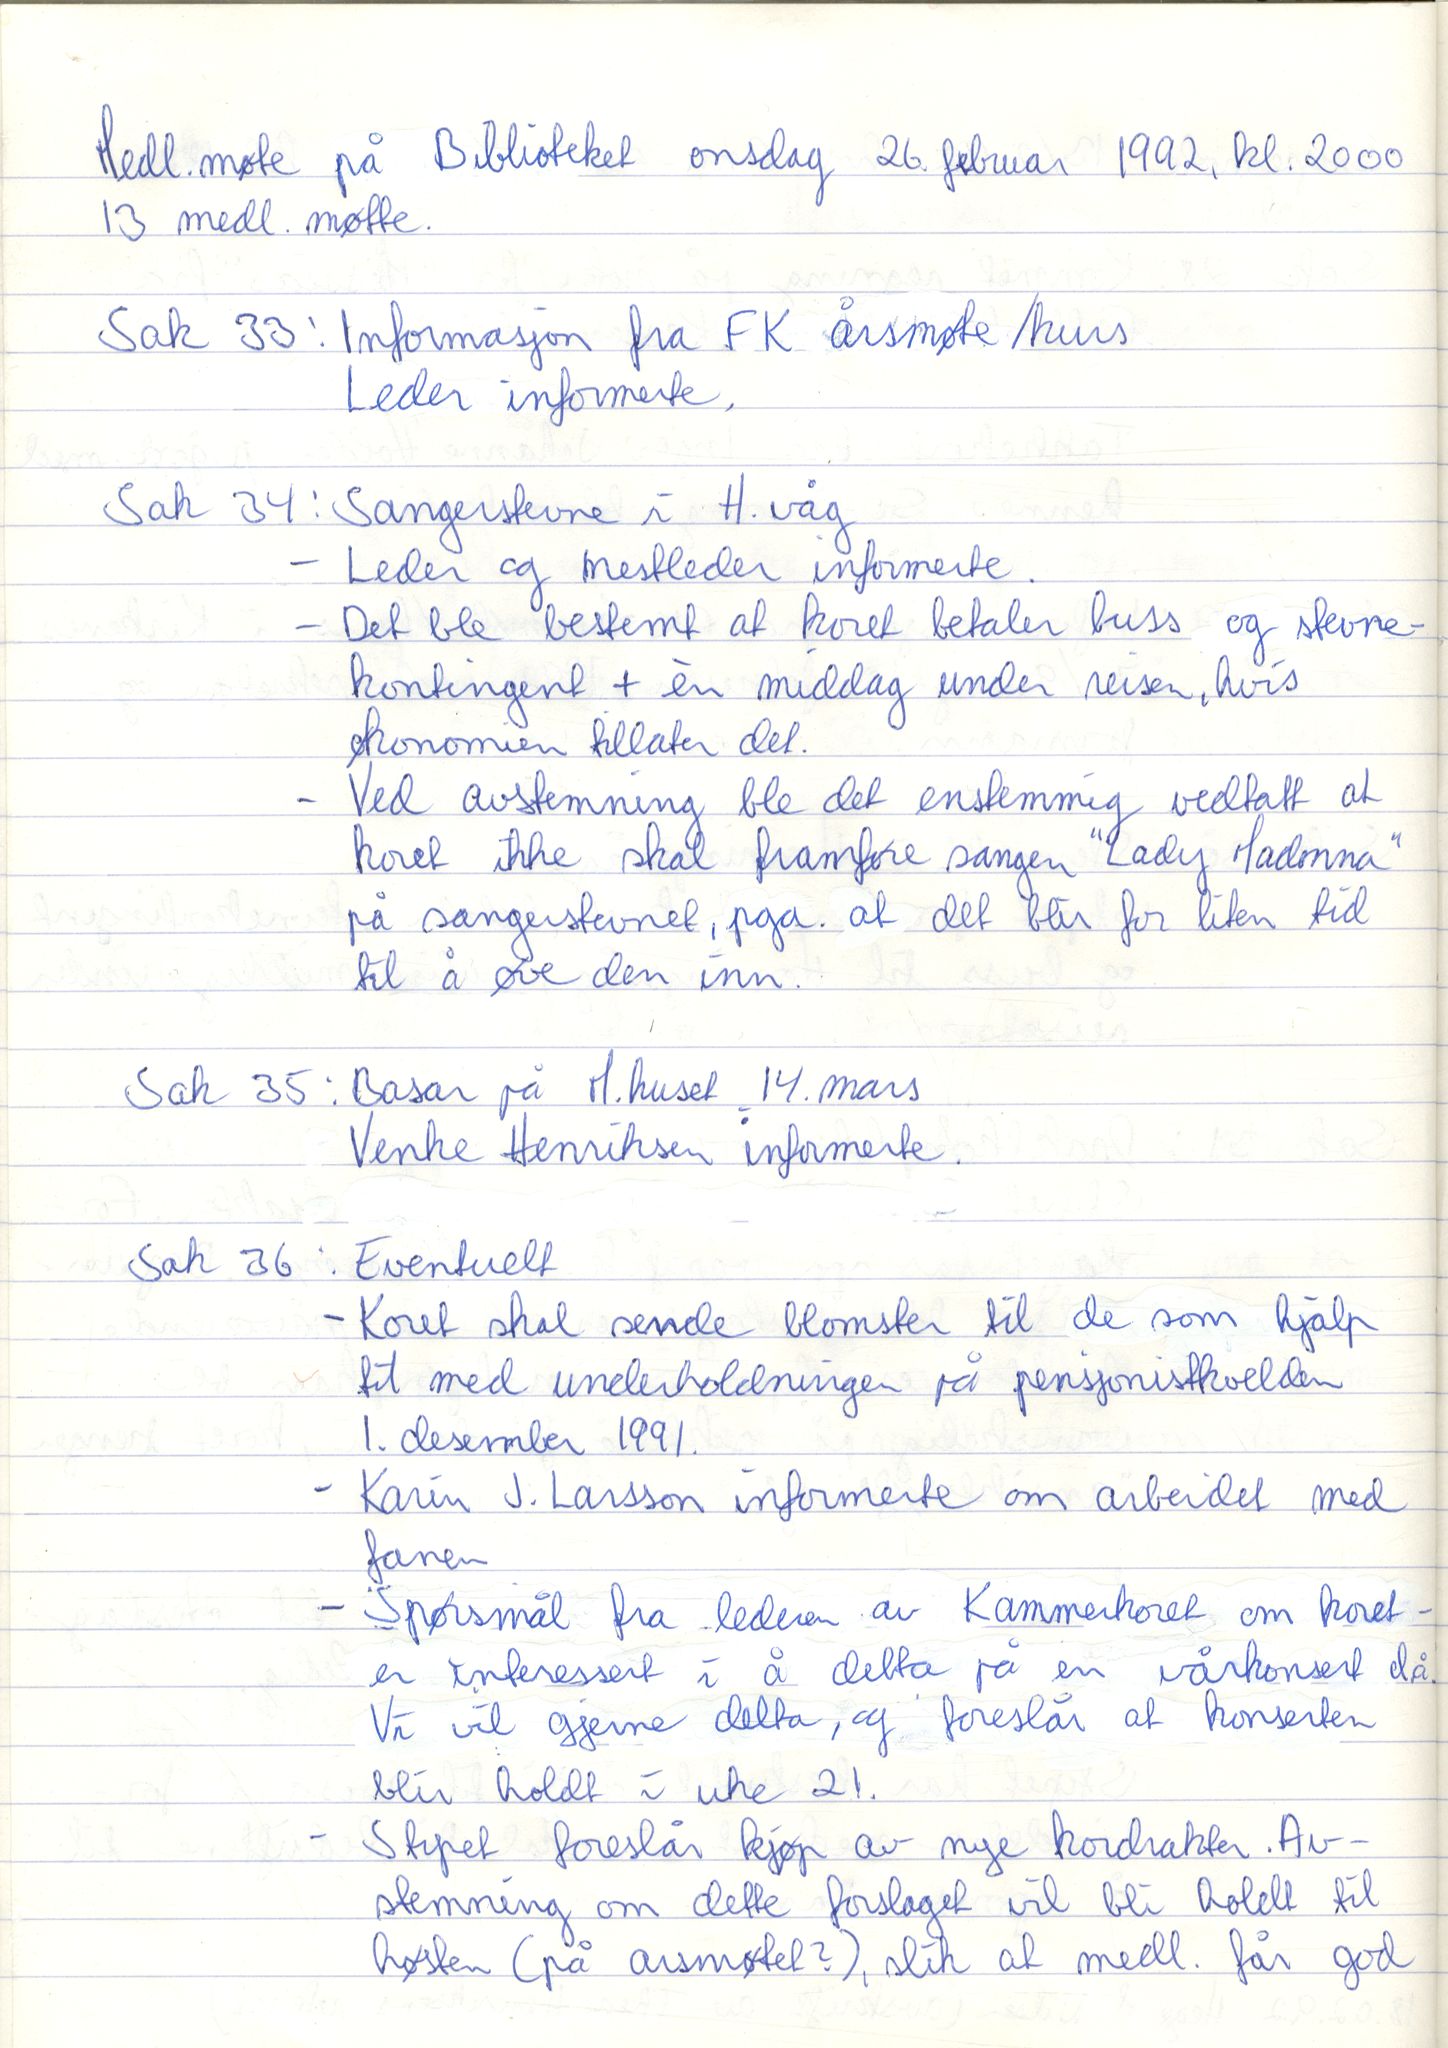 Medl.møte på Biblioteket onsdag 26. februar 1992, kl. 2000
13 medl. møtte.
Sak 33: Informasjon fra FK årsmøte/kurs
Leder informerte.
Sak 34: Sangerstevne i H.våg
- Leder og nestleder informerte.
- Det ble bestemt at koret betaler buss og stevne-
kontingent + èn middag under reisen, hvis
økonomien tillater det.
- Ved avstemning ble det enstemmig vedtatt at
koret ikke skal framføre sangen "Lady Madonna"
på sangerstevnet, pga. at det blir for liten tid
til å øve den inn.
Sak 35: Basar på M.huset 14. mars
Venke Henriksen informerte.
Sak 36: Eventuelt
- Koret skal sende blomster til de som hjalp
til med underholdningen på pensjonistkvelden
1. desember 1991.
- Karin J. Larsson informerte om arbeidet med
fanen
- Spørsmål fra lederen av Kammerkoret om koret
er interessert i å delta på en vårkonsert då.
Vi vil gjerne delta, og foreslår at konserten
blir holdt i uke 21.
- Styret foreslår kjøp av nye kordrakter. Av-
stemning om dette forslaget vil bli holdt til
høsten (på arsmøtet?), slik at medl. får god